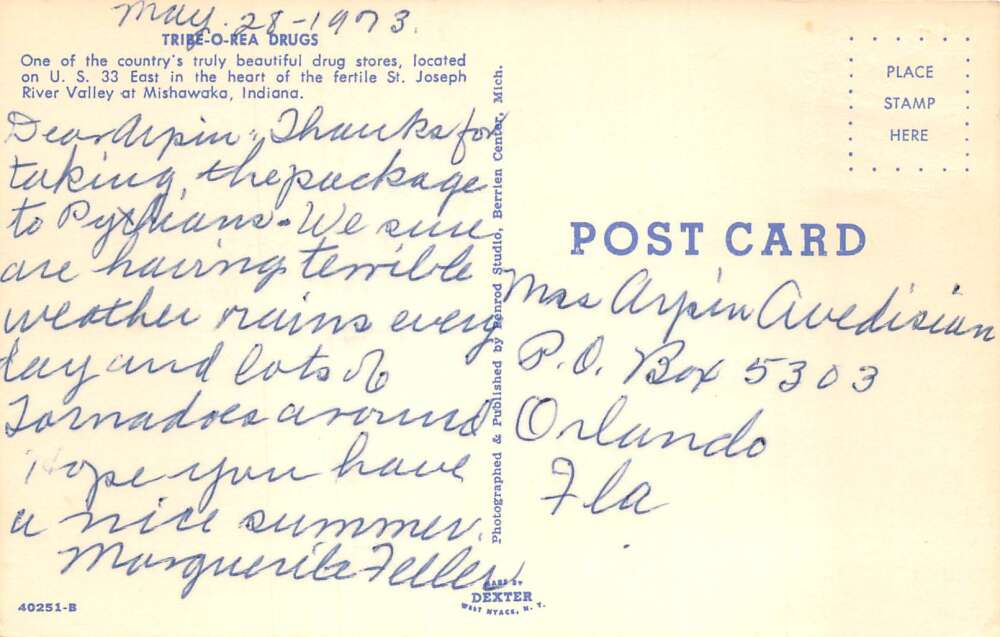 May. 28-1973.
TRIBE-O-REA DRUGS
One of the country's truly beautiful drug stores, located
on U. S. 33 East in the heart of the fertile St. Joseph
River Valley at Mishawaka, Indiana.
Dear Arpin: Thanks for
taking the package
to Pythians. We sure
are having terrible
weather rains every
day and lots of
Tornadoes around
Hope you have
a nice summer.
Marguerite Feller
40251-B
Photographed & Published by Penrod Studio, Berrien Center, Mich.
MADE BY
DEXTER
WEST NYACK, N. Y.
PLACE
STAMP
HERE
POST CARD
Mrs Arpin Avedisian
P.O. Box 5303
Orlando
Fla